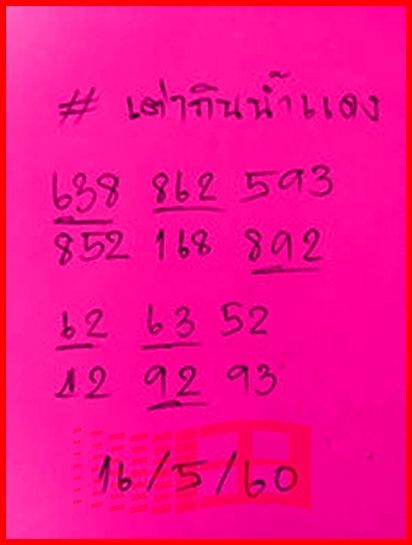 # เต่ากินน้ำแดง
638 862 593
852 168 892
62 63 52
12 92 93
16/5/60